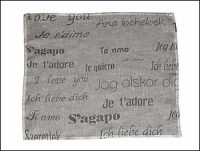 love you
Ana behebek
Je t'aime
Te amo
Jeg
S'agapo
Ich liebe
Je t'adore
Te quiero
I love you
Jag älskar dig
Je t'adore
Ich liebe dich
Te amo
S'agapo
Ich liebe dich
Szeretlek